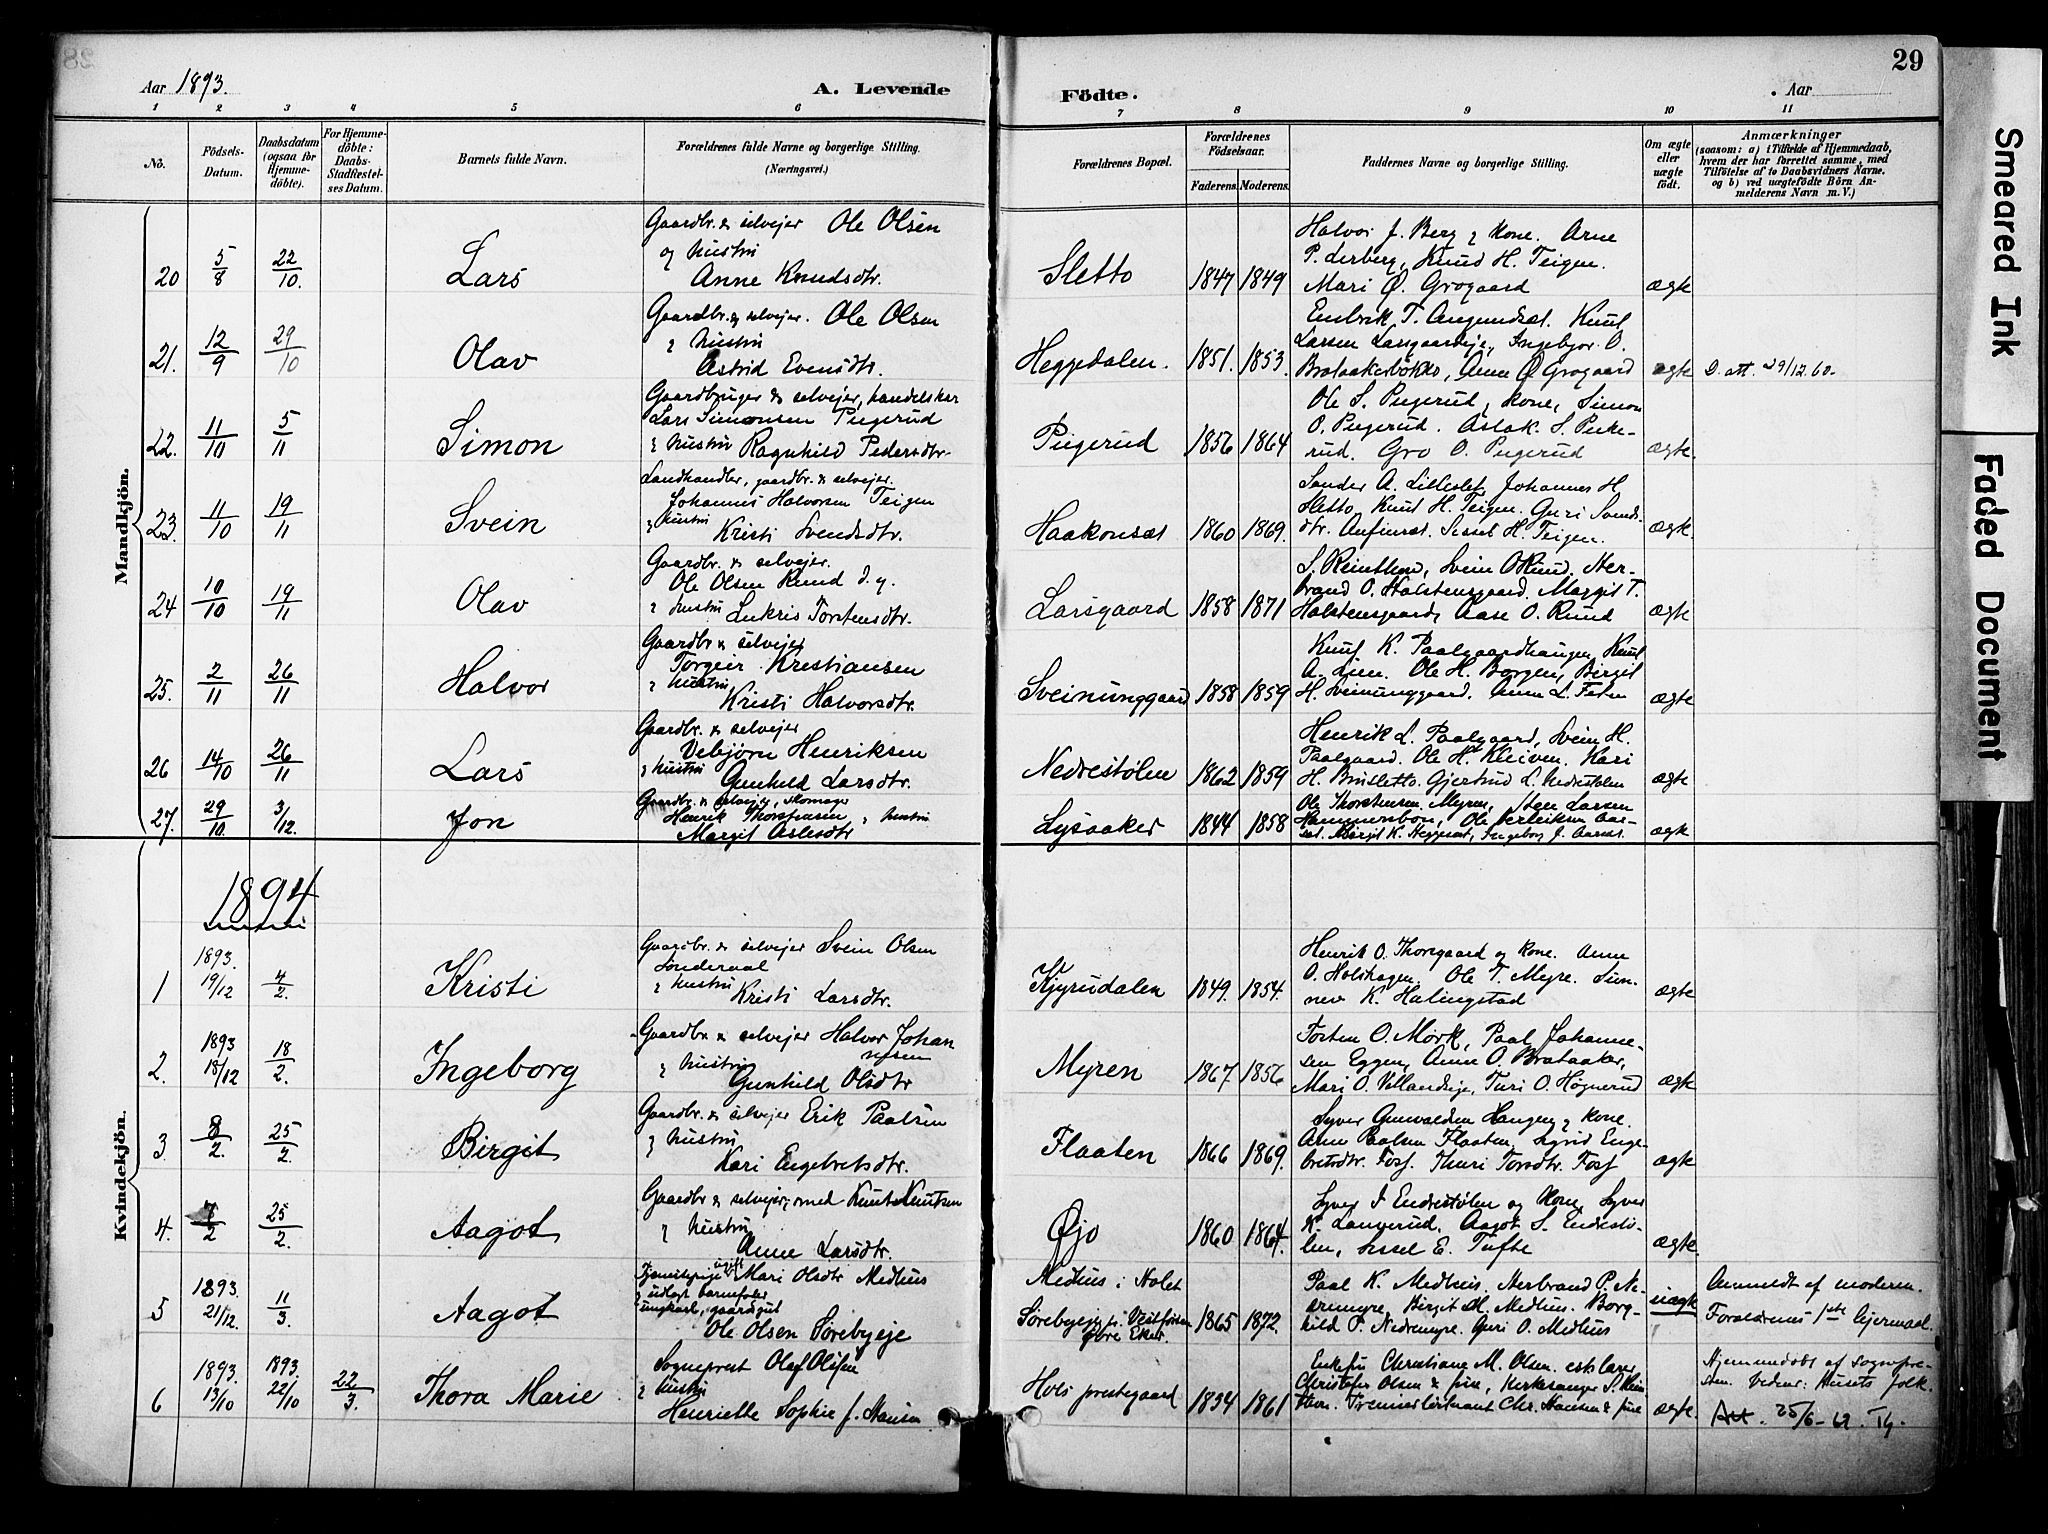 28
29
Aar 1893.
A. Levende
Födte.
Aar
1 2 3 4 5 6 7 8 9 10 11
No.
Födsels-
Datum.
Daabsdatum
(ogsaa for
Hjemme-
döbte).
For Hjemme-
döbte:
Daabs-
Stadfæstel-
ses Datum.
Barnets fulde Navn.
Forældrenes fulde Navne og borgerlige Stilling.
(Næringsvei.)
Forældrenes Bopæl.
Forældrenes
Födselsaar.
Faderens. Moderens.
Faddernes Navne og borgerlige Stilling.
Om ægte
eller
uægte
födt.
Anmærkninger
(saasom: a) i Tilfælde af Hjemmedaab,
hvem der har forrettet samme, med
Tilföielse af to Daabsvidners Navne.
og b) ved uægtefödte Börn An-
melderens Navn m. V.)
Mandkjön.
20 5/8 22/10. Lars
Gaardbr. & selveier Ole Olsen
og hustru
Anne Knudsdtr.
Sletto 1847 1849
Halvor J. Berg & kone. Arne
P. Lerberg, Knud H. Teigen.
Mari O. Grogaard
ægte
21. 12/9 29/10 Olav
Gaardbr. & selveier. Ole Olsen
& hustru
Astrid Evensdtr.
Heggedalen. 1851. 1853.
Embrik T. Angundsæt. Knut
Larsen Larsgaardeje, Ingebjør O.
Brataakerbökko, Anne O Grogaard
ægte D. att. 29/12.60.
22. 11/10 5/11 Simon
Gaardbruger & selveier, handelskar
Lars Simonsen Pugerud
& hustru Ragnhild Pedersdtr.
Pugerud 1856 1864
Ole S. Pugerud & kone, Simon
O. Pugerud. Aslak S. Puke-
rud. Gro O. Pugerud
ægte.
23. 11/10 19/11 Svein
Landhandler, gaardbr. & selveier.
Johannes Halvorsen Teigen
& hustru
Kristi Svendsdtr.
Haakonsæt 1860 1869.
Sander A. Lilleslet, Johannes H.
Sletto Knut H. Teigen. Guri Svends-
dtr. Anfinsæt. Sissel H. Teigen.
ægte.
24 10/10 19/11 Olav
Gaardbr. & selveier.
Ole Olsen Rund d.y.
& hustru Lukris Torstensdtr.
Larsgaard 1858 1871
S. Reinthon, Svein O Rund. Her-
brand O. Halstensgaard. Maggit T.
Halstensgaard, Aase O. Rund
ægte
25. 2/11 26/11 Halvor
Gaardbr & selveier
Torgeir Kristiansen
& hustru
Kristi Halvorsdtr.
Sveinunggaard 1858 1859
Knut K. Paalgaardhaugen, Knut
A. Lien. Ole H. Borgen, Birgit
H. Sveinunggaard. Anne L. Feten
ægte
26 14/10 26/11 Lars
Gaardbr. & selveier
Vebjørn Henriksen
& hustru
Gunhild Larsdtr.
Nedrestølen 1862 1859
Henrik L. Paalgaard, Svein H.
Paalgaard. Ole H. Kleiven. Kari
H. Brusletto. Gjertrud L. Nedrestølen
ægte
27. 29/10 3/12. Jon
Gaardbr. & selveier, skomager
Henrik Thorstensen & hustru
Margit Aslesdtr
Lysaaker 1844 1858
Ole Thorstensen Myren, Sten Larsen
Hammersbøn, Ole Erleiksen Aar-
set. Margit K. Heggesæt, Ingeborg J. Aarset.
ægte
1894
Kvindekjön.
1 1893. 19/12 4/2. Kristi
Gaardbr. & selveier Svein Olsen
Sønderaal
& hustru
Kristi Larsdtr.
Kjyrudalen 1849. 1854.
Henrik O. Thorsgaard og kone. Anne
O. Holshagen. Ole T. Myre. Sun-
nev K. Halingstad
ægte
2. 1893 18/12 18/2. Ingeborg
Gaardbr. & selveier Halvor Johan
nesen
& hustru
Gunhild Olsdtr
Myren 1867. 1856
Torsten O. Mørk, Paal Johanne-
sen Eggen, Anne O. Brataaker,
Mari O. Villandseje, Turi O. Høgnerud
ægte
3. 8/2. 25/2. Birgit
Gaardbr. & selveier Erik Paalsen
& hustru
Kari Engebretsdtr.
Flaaten 1866 1869.
Syver Gunvaldsen Haugen & kone.
Arne Paalsen Flaaten. Sigrid Enge-
bretsdtr. Foss. Thuri Torsdtr. Foss
ægte
4. 7/2 25/2. Aagot
Gaardbr & selveier, smed Knut Knutsen
& hustru
Anne Larsdtr.
Øjo 1860 1864.
Syver I Endrestølen og kone, Syver
K. Langerud. Aagot S. Endestø-
len, Sissel E. Tufte
ægte.
5 1893. 21/12. 11/3. Aagot
Tjenestepige ugift Mari Olsdtr Medhus
& udlagt barnefader
ungkarl, gaardgut
Ole Olsen Sørebyeje
Medhus i Holet
Sørebyeje, fr. Vestfossen
Øvre Eker
1865 1872.
Paal K. Medhus. Herbrand P. Ne-
dremyre, Birgit M. Medhus. Borg-
hild P. Nedremyre. Guri O. Medhus
uægte
Anmeldt af moderen.
Forældrenes 1ste lejermaal.
6 1893. 13/10 1893. 22/10 22/3. Thora Marie
Sogneprest Olaf Olsen
& hustru
Henriette Sophie f. Hansen
Hols prestegaard 1854 1861
Enkefru Christiane M. Olsen. cst. lærer
Christofer Olsen & frue, kirkesanger S. Rein
thon. Premierløitnant Chr. Hansen & frue
ægte.
Hjemmedöbt af sognepre-
sten. Vidner: Husets folk.
Att. 25/6-62. Tg.
Smeared Ink
Faded Document